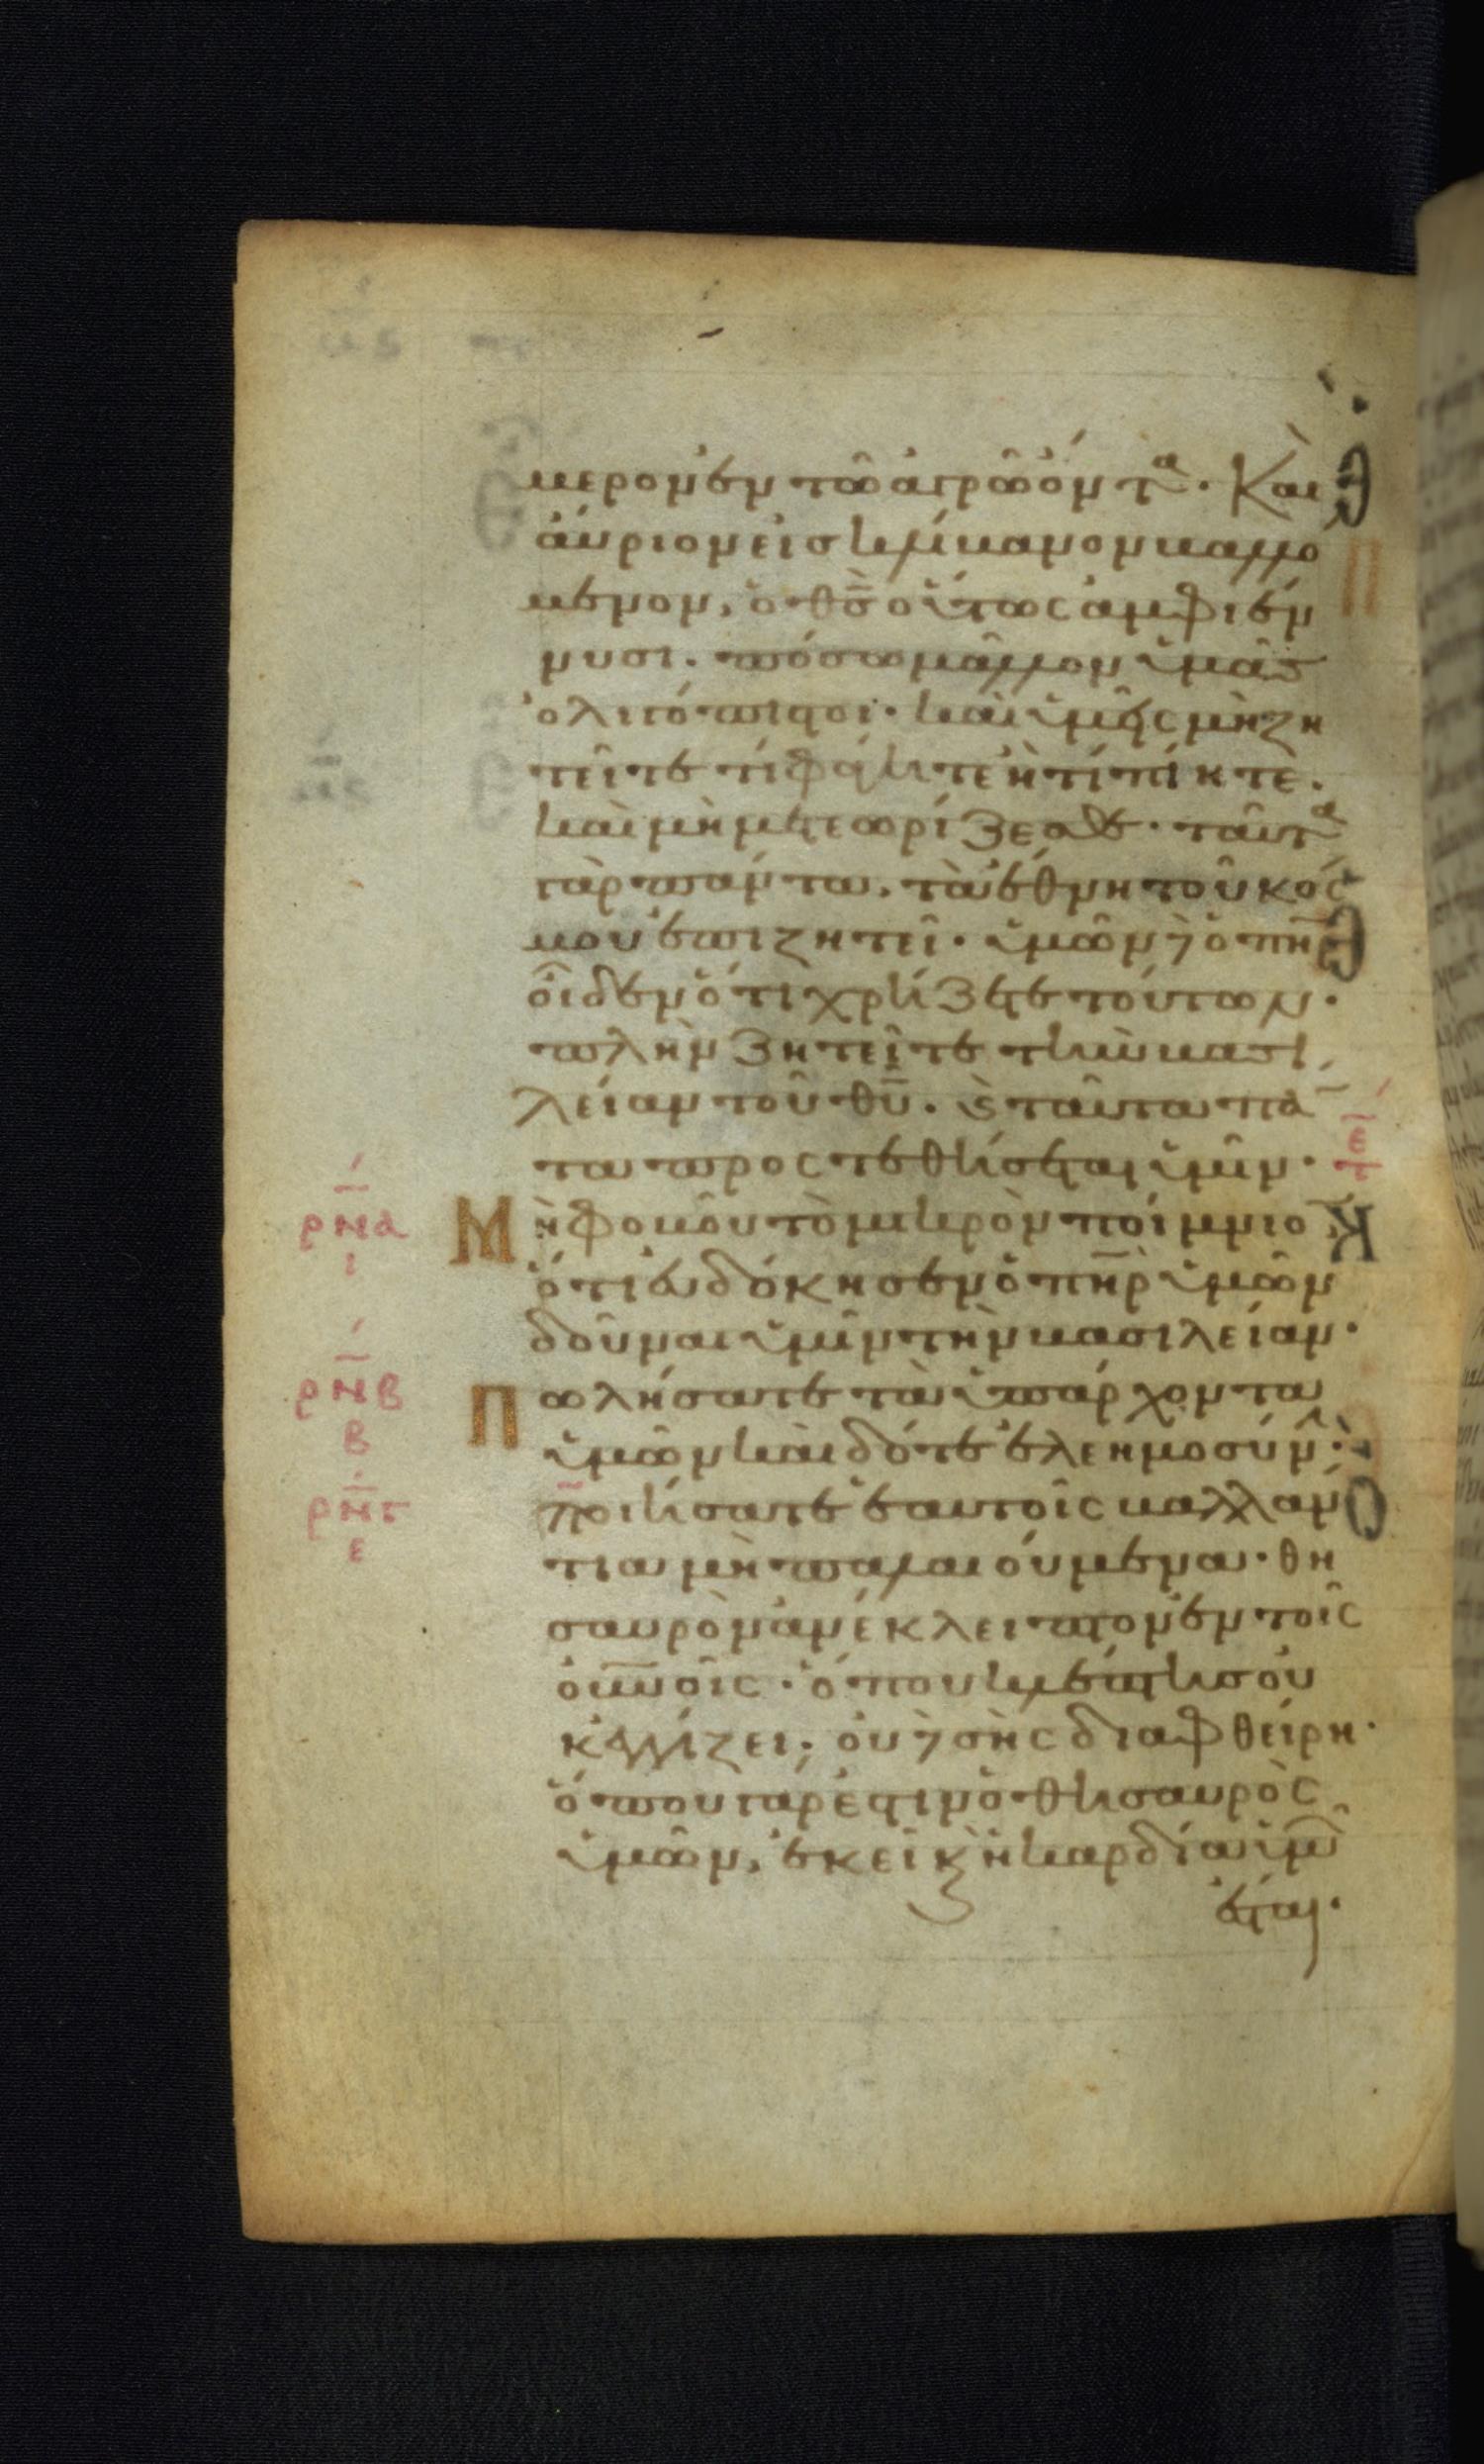 μερον ἐν τῶ ἀγρῶ ὄντα. Καὶ
ἀύριον εἰς κλίβανον βαλλο
μενον, ὁ θς̅ οὕτως ἀμφιέν
νυσι. πόσω μᾶλλον ὑμᾶς
ὀλιγόπιστοι. καὶ ὑμεῖς μὴ ζη
τεῖτε τί φάγητε ἢ τί πίητε.
καὶ μὴ μετεωρίζεσθε. ταῦτα
γὰρ πάντα, τὰ ἔθνη τοῦ κόσ
μου ἐπιζητεῖ. ὑμῶν δὲ ὁ πη̅ρ
οἶδεν ὅτι χρήζετε τούτων.
πλὴν ζητεῖτε τὴν βασι
λείαν τοῦ θυ̅. καὶ ταῦτα πά
τα προςτεθήσεται ὑμῖν.
Μὴ φοβοῦ τὸ μικρὸν ποίμνιο
ὅτι εὐδόκησεν ὁ πη̅ρ ὑμῶν
δοῦναι ὑμῖν τὴν βασιλείαν.
Πωλήσατε τὰ ὑπάρχοντα
ὑμῶν καὶ δότε ἐλεημοσύν.
ποιήσατε ἑαυτοῖς βαλλάν
τια μὴ παλαιούμενα. θη
σαυρὸν ἀνέκλειπτον ἐν τοῖς
οὐν̅οῖς. ὅπου κλέπτης οὐ
κ ἐγγίζει. οὐδὲ σὴς διαφθείρη.
ὅπου γάρ ἐστιν ὁ θησαυρὸς
ὑμῶν, ἐκεῖ κ ἡ καρδία ὑμῶ
ἔσται.
ρν̅α
ι
ρν̅β
β
ρν̅γ
ε